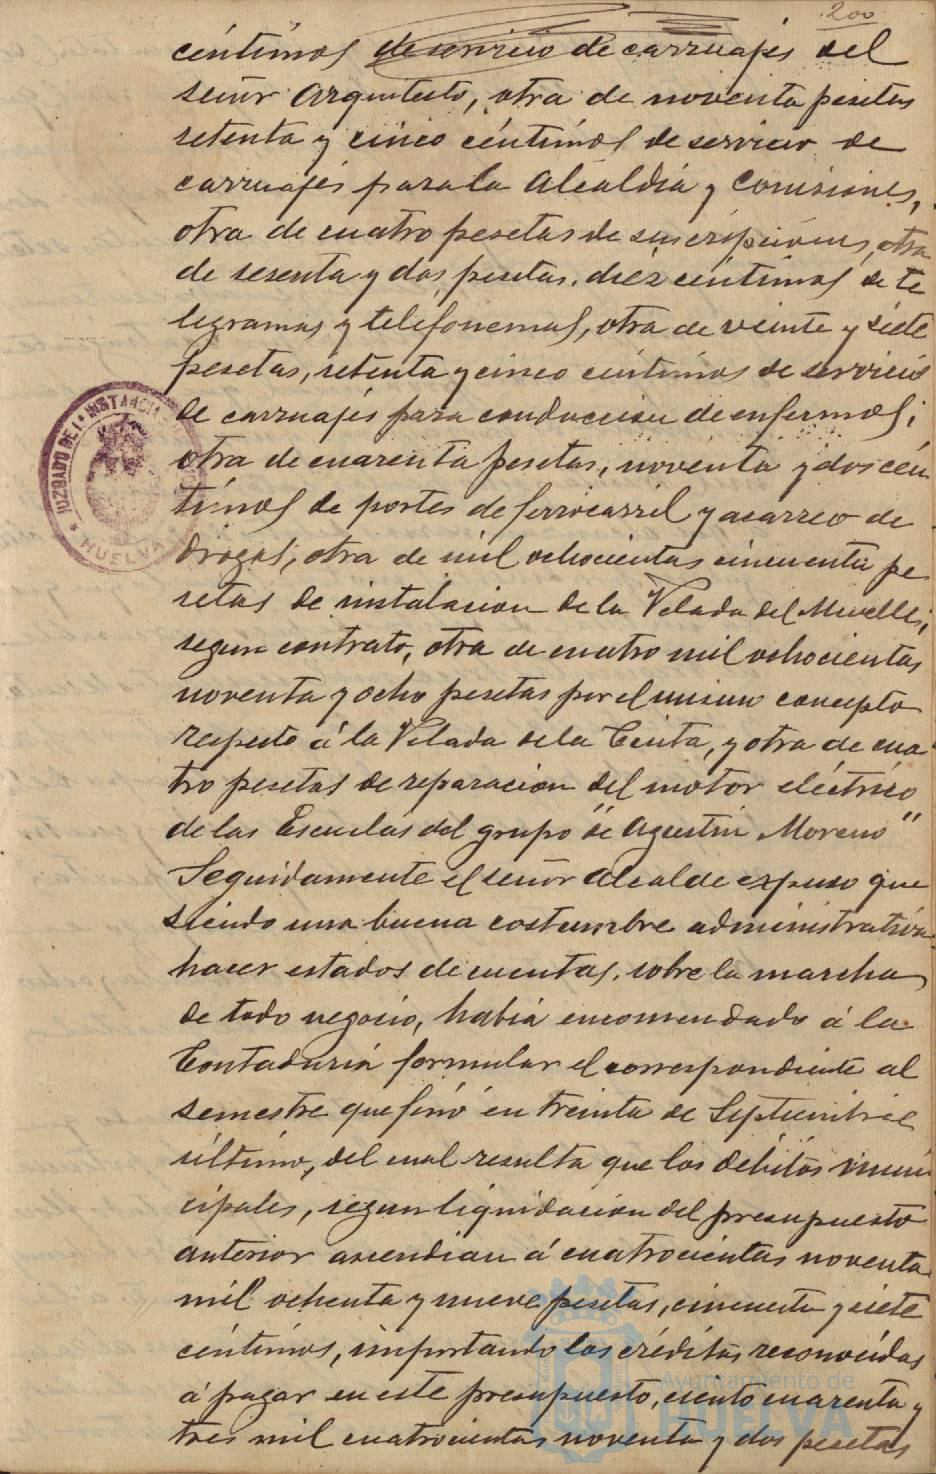 200
céntimos de servicio de carruajes del
señor Arquitecto, otra de noventa pesetas
setenta y cinco céntimos de servicio de
carruajes para la Alcaldia y Comisiones,
otra de cuatro pesetas de suscripciones, otra
de sesenta y dos pesetas, diez céntimos de te
legramas y telefonemas, otra de veinte y siete
pesetas, setenta y cinco céntimos de servicio
de carruajes para conduccion de enfermos;
otra de cuarenta pesetas, noventa y dos cén
timos de portes de ferrocarril y acarreo de
drogas, otra de mil ochocientas cincuenta pe
setas de instalacion de la Velada del Muelle,
segun contrato, otra de cuatro mil ochocientas
noventa y ocho pesetas por el mismo concepto
respecto á la Velada de la Cinta, y otra de cua
tro pesetas de reparacion del motor eléctrico
de las Escuelas del grupo de Agustin Moreno"
Seguidamente el señor Alcalde expuso que
siendo una buena costumbre administrativa
hacer estados de cuentas, sobre la marcha
de todo negocio, habia encomendado á la
Contaduria formular el correspondiente al
semestre que finó en treinta de Septiembre
último, del cual resulta que los débitos muni
cipales, segun liquidacion del presupuesto
anterior ascendian á cuatrocientas noventa
mil ochenta y nueve pesetas, cincuenta y siete
céntimos, importando los créditos reconocidos
á pagar en este presupuesto, ciento cuarenta y
tres mil cuatrocientas noventa y dos pesetas
JUZGADO DE 1ª INSTANCIA
HUELVA
Ayuntamiento de
HUELVA